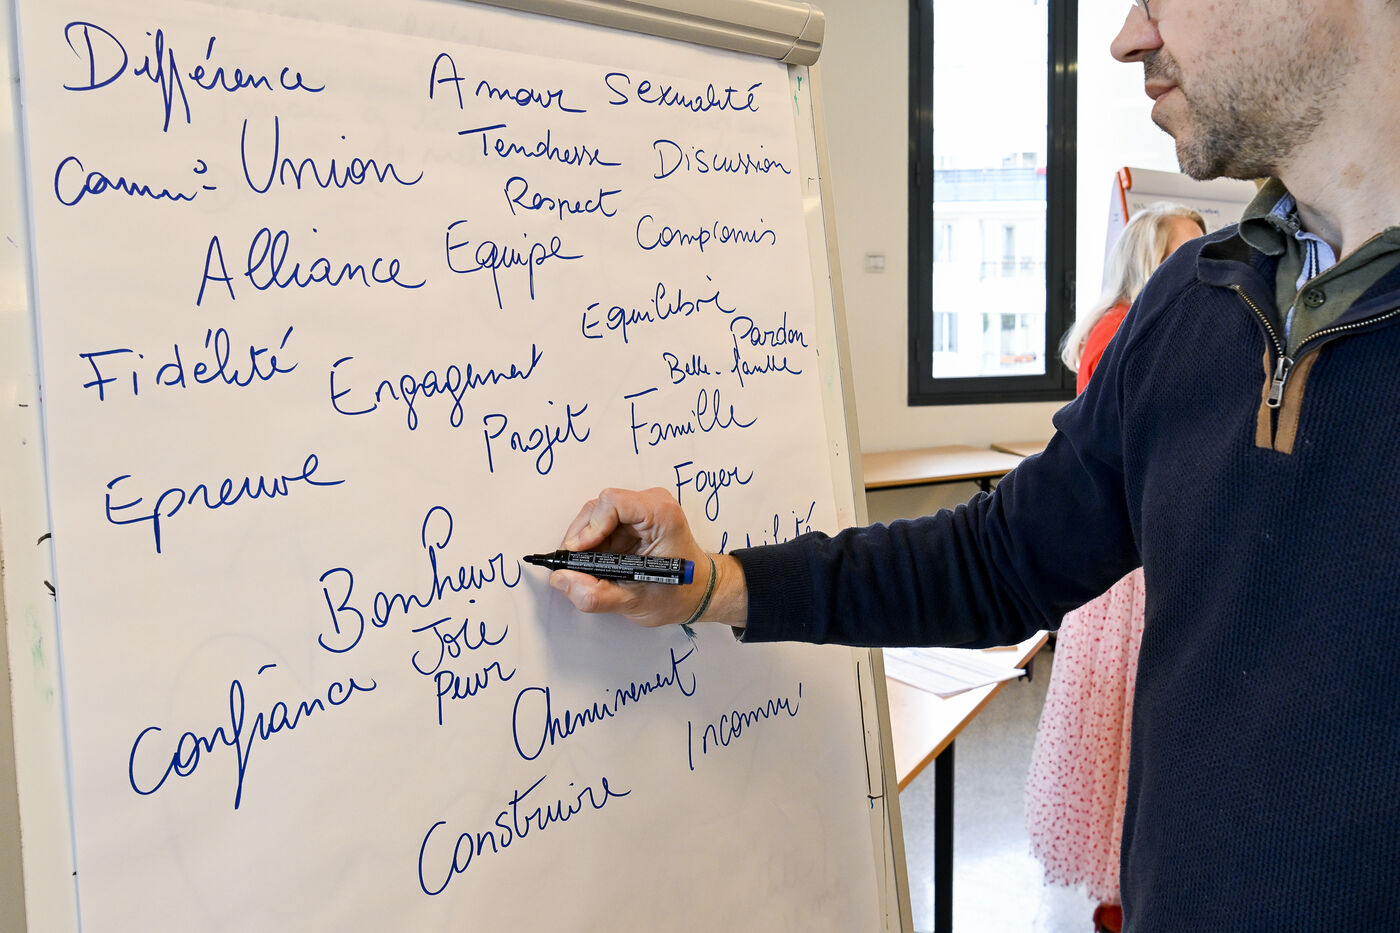 Différence
Amour Sexualité
Commu°-
Union
Tendresse
Discussion
Respect
Alliance
Equipe
Compromis
Equilibre
Pardon
Fidélité
Engagement
Belle-famille
Projet
Famille
Epreuve
Foyer
Bonheur
Joie
Confiance
Peur
Cheminement
Inconnu
Construire